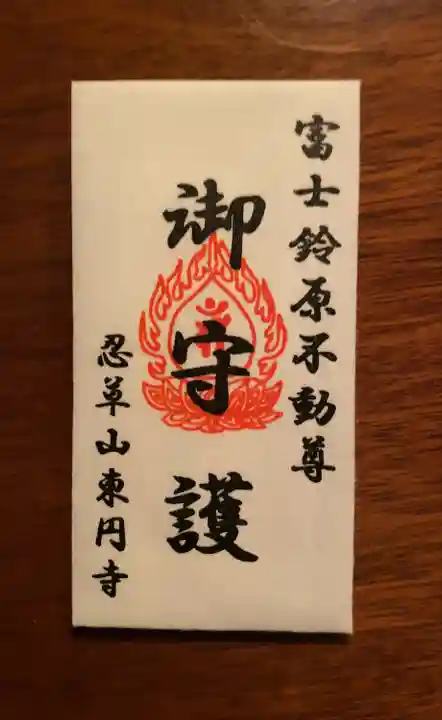 富士鈴原不動尊
御守護
忍草山東円寺